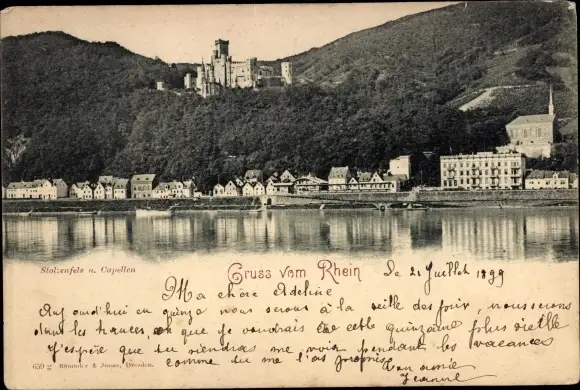 Stolzenfels u. Capellen
Gruss vom Rhein
Le 21 Juillet 1899
Ma chère Adeline
Aujourd'hui en quinze nous serons à la veille des prix, nous serons
dans les trances, que je voudrais être cette quinzaine plus vieille
J'espère que tu viendras me voir pendant les vacances
comme tu me l'as promis. Ton amie
Jeanne
659 g Römmler & Jonas, Dresden.